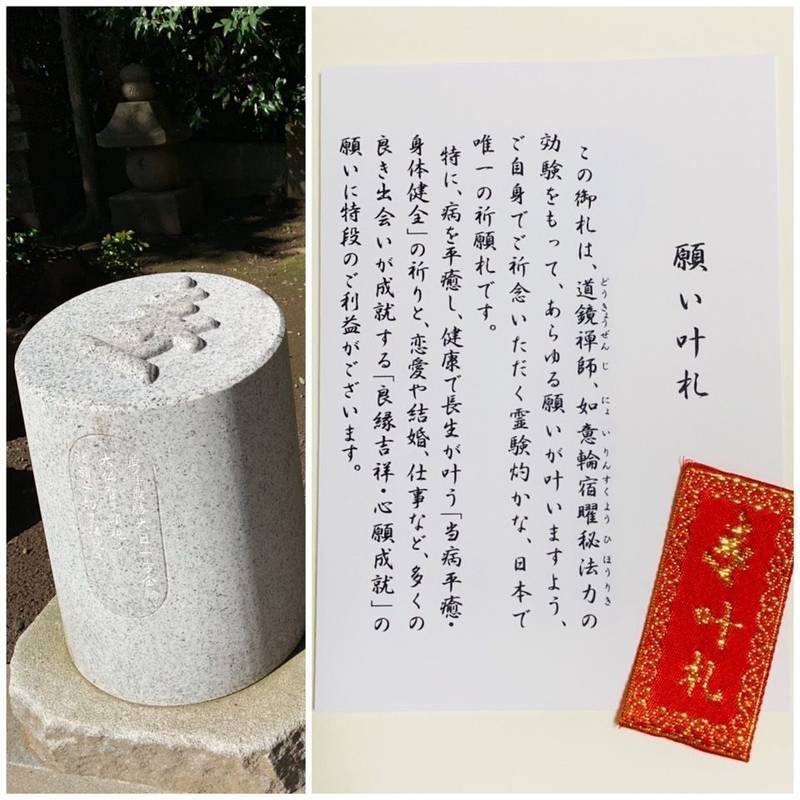 願い叶札
どうきょうぜんじ にょいりんすくようひほうりき
この御札は、道鏡禅師、如意輪宿曜秘法力の
効験をもって、あらゆる願いが叶いますよう、
ご自身でご祈念いただく霊験灼かな、日本で
唯一の祈願札です。
特に、病を平癒し、健康で長生が叶う「当病平癒・
身体健全」の祈りと、恋愛や結婚、仕事など、多くの
良き出会いが成就する「良縁吉祥・心願成就」の
願いに特段のご利益がございます。
叶札